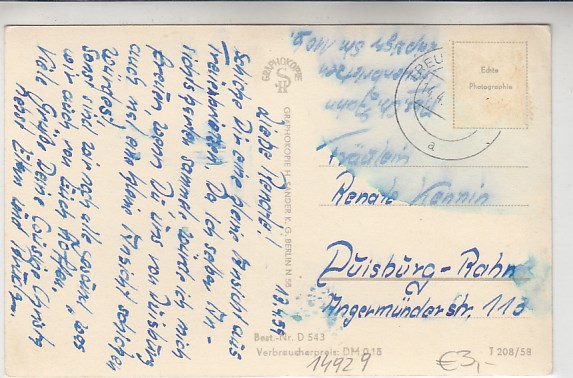 13.4.59
Liebe Renate!
Schicke Dir eine kleine Ansicht aus
Treuenbrietzen. Da ich selber An-
sichtskarten sammle, würd ich mich
freuen, wenn Du uns von Duisburg
auch mal eine kleine Ansicht schicken
würdest.
Sonst sind wir noch alle gesund, was
wir auch von Euch hoffen.
Viele Grüße Deine Cousine Christa
nebst Eltern und
GRAPHOKOPIE
GRAPHOKOPIE H. SANDER K. G. BERLIN N 58
Best.-Nr. D 543
Verbraucherpreis: DM 0,15
14929
TREU
a
Echte
Photographie
Treuenbrietzen
Fräulein
Renate
Duisburg-Rahm
Angermünderstr. 113
T 208/58
€3,-